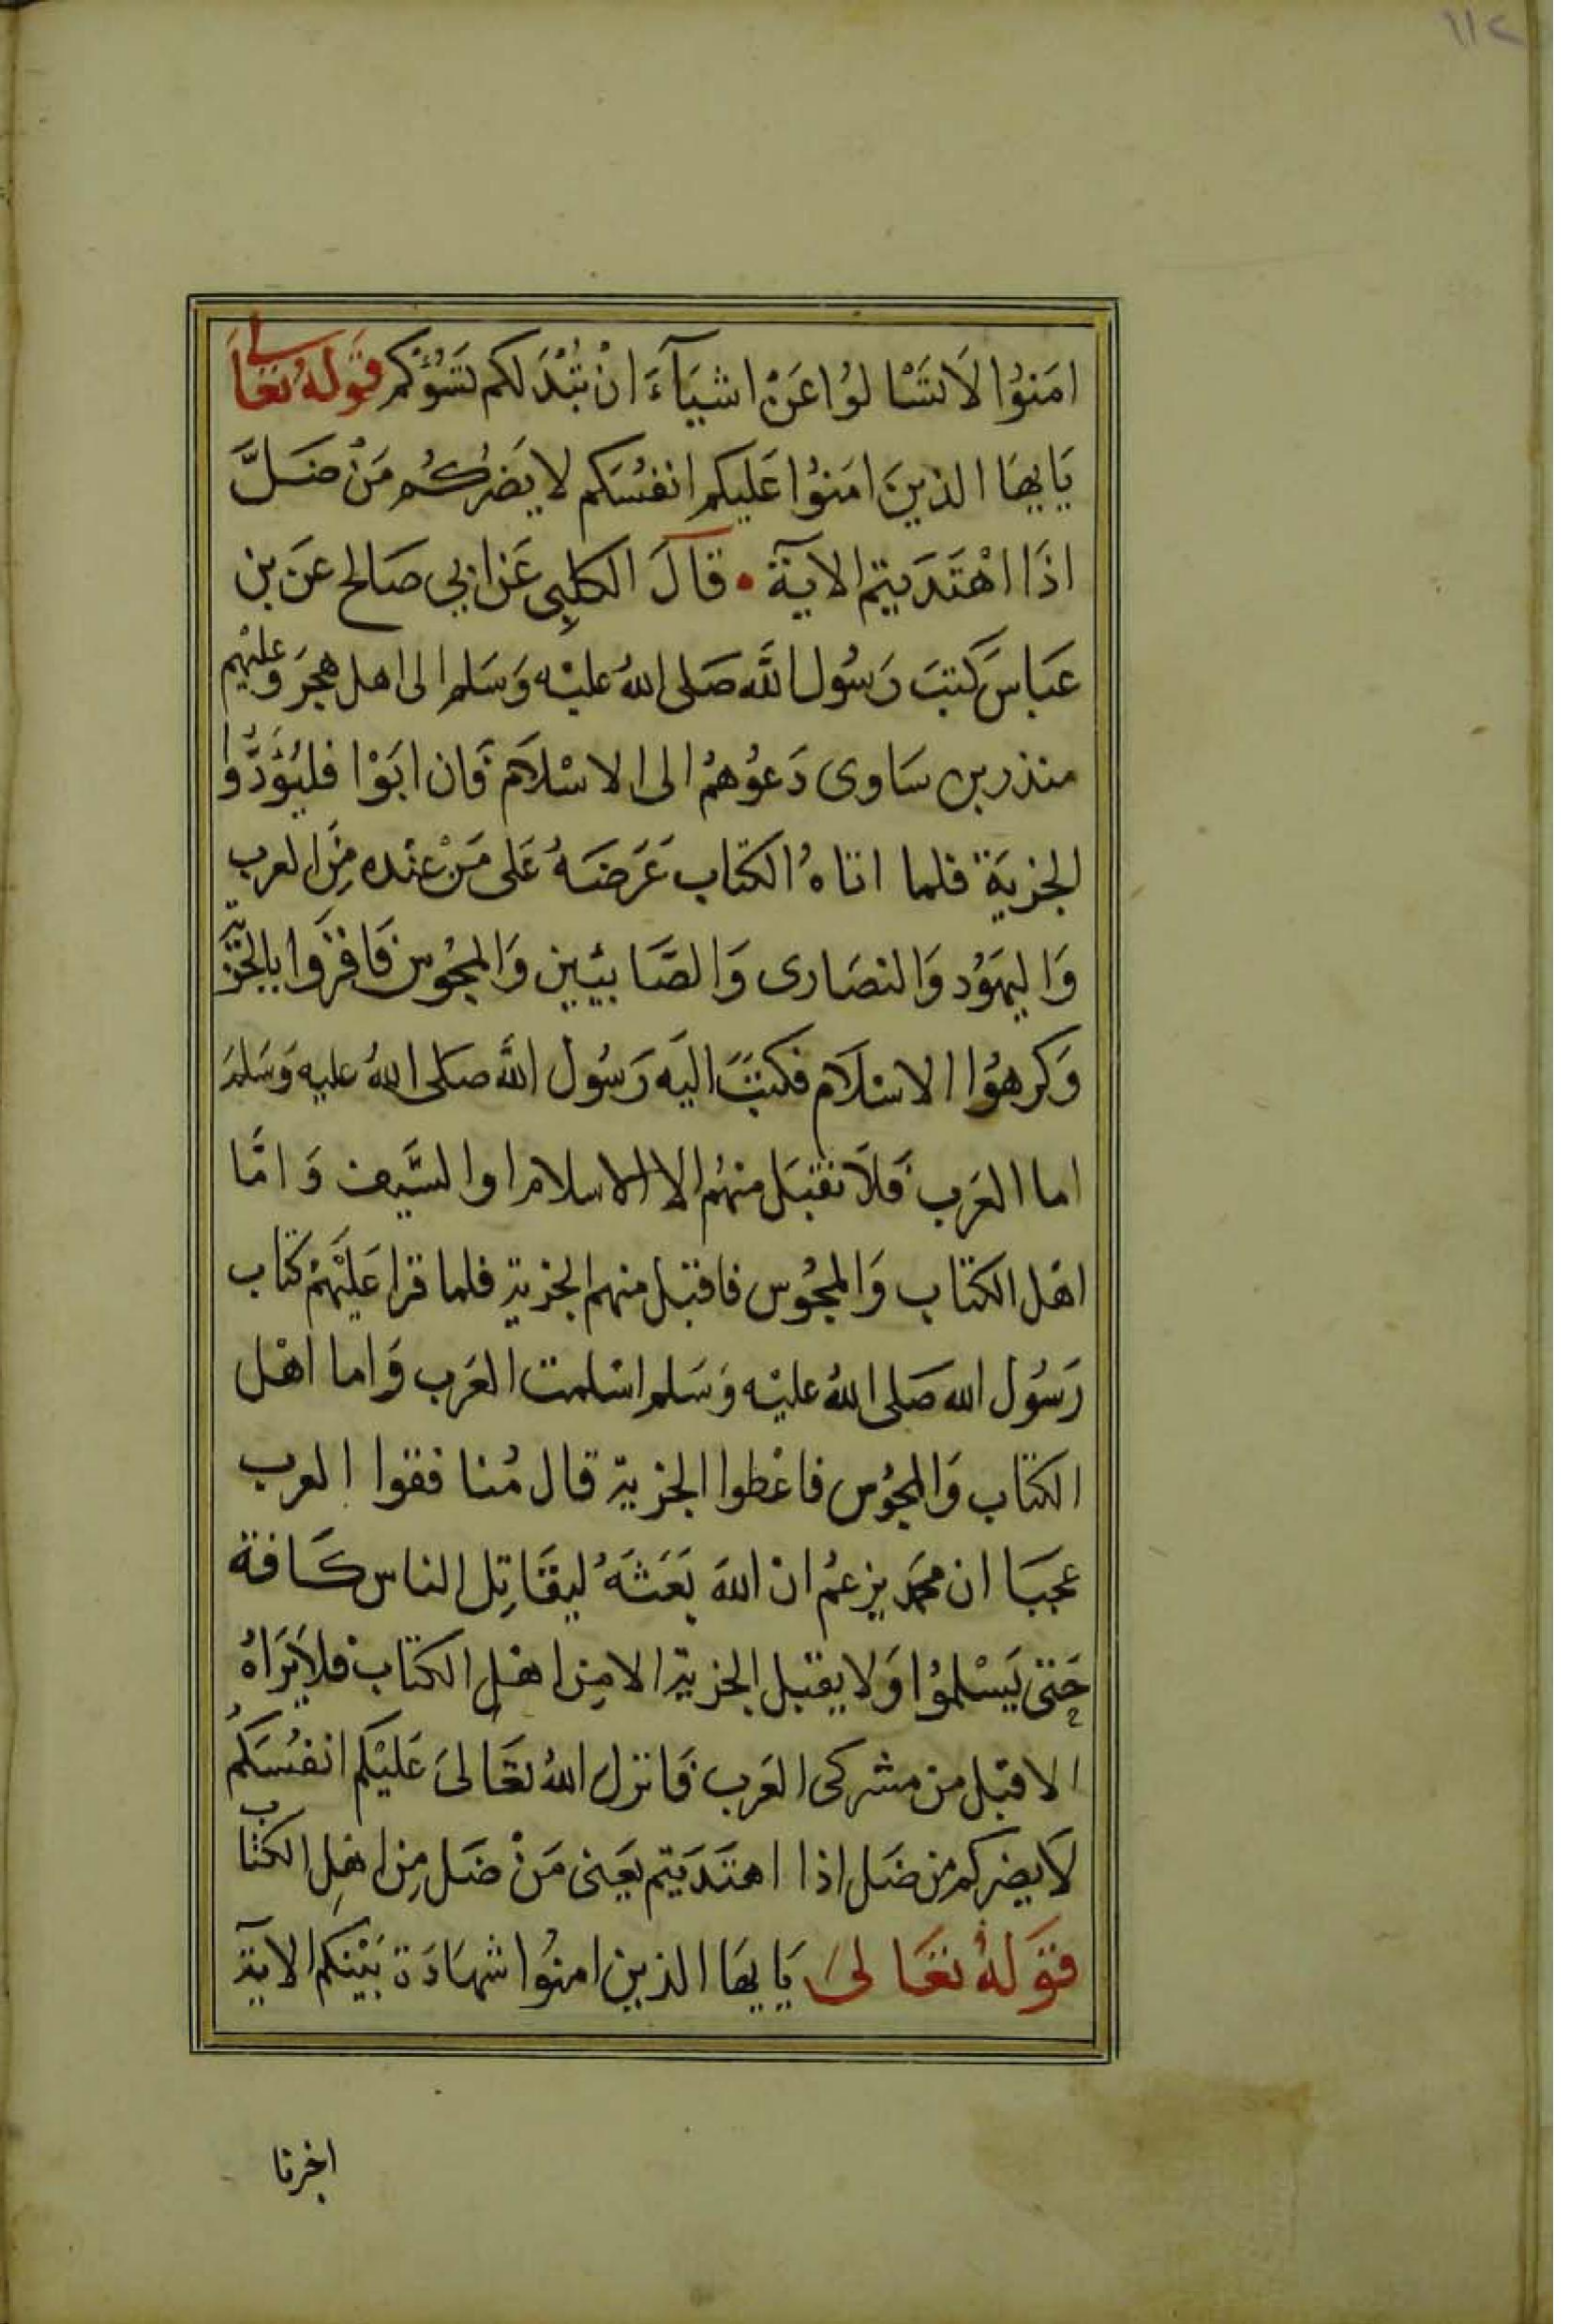 ١١٢
امَنوُا لَا تَسْالوُا عَنْ اشيَآءَ انْ تُبْدَ لكم تَسُؤْكم قَولهُ تعَالى
يَايهَا الذينَ امَنوُا عَليكم انفسُكم لا يَضرُكُم مَنْ ضَلَّ
اذَا اهْتَدَيتم الايَة • قالَ الكلبِى عَن ابي صَالح عَن بن
عَباسَ كتبَ رَسُول اللَّه صَلى اللهُ عليْه وَسَلم الى اهل هجَر وَعليْهم
منذر بن سَاوى دَعوُهمُ الى الاسْلاَم فَان ابَوْا فليُؤَدُّوا
الجزيَة فلما اتاهُ الكتاب عَرَضَهُ عَلى مَنْ عنْده مِنَ العرب
وَاليهَوُد وَالنصَارى وَالصَّابئيين وَالمجوُس فَاقرَّوا بالجزية
وَكرهوُا الاسْلَام فكتبَ اليَه رَسُول اللَّه صَلى اللهُ عليه وَسَلمَ
اما العَرَب فَلاَ نقبَل منهُم الا الاسلام او السَّيف وَامَّا
اهْل الكتاب وَالمجوُس فاقبَل منهم الجزية فلما قرا عَليْهمْ كتاب
رَسُول الله صَلى اللهُ عليْه وَسَلم اسْلمت العَرَب وَاما اهْل
الكتاب وَالمجوُس فاعْطوا الجزية قال مُنافقوا العرب
عجبَا ان محمَد يزعمُ انْ اللهَ بَعَثَهُ ليقَاتِل الناس كَافة
حَتى يَسْلموُا وَلا يقبَل الجزية الا مِن اهْل الكتاب فلاَ يَرَاهُ
الا قبل من مشركى العَرب فَانزل اللهُ تعَالىَ عَليْكم انفسُكمُ
لَا يضركم من ضَل اذا اهتَدَيتم يَعنى مَنْ ضَل مِن اهْلِ الكتاب
قوَلهُ تعَالىَ يَايهَا الذين امنوُا شهَادَة بَيْنكم الاية
اخبرنا